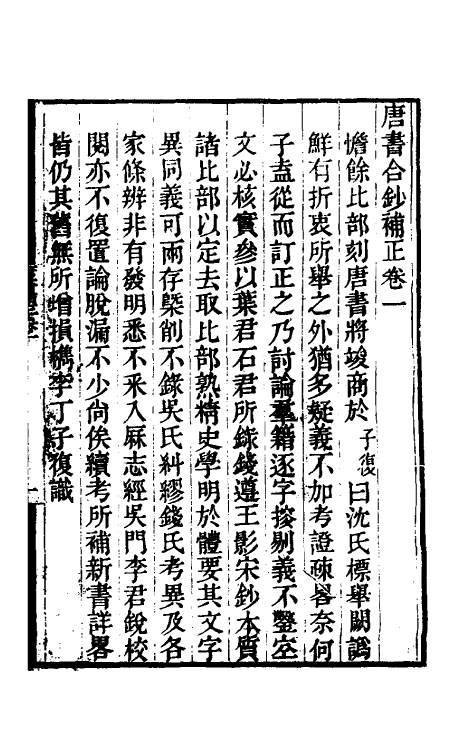 唐書合鈔補正卷一
憺餘比部刻唐書將竣商於子復曰沈氏標舉闕譌
鮮有折衷所舉之外猶多疑義不加考證疎畧奈何
子盍從而訂正之乃討論羣籍逐字挍剔義不鑿空
文必核實參以葉君石君所錄錢遵王影宋鈔本質
諸比部以定去取比部熟精史學明於體要其文字
異同義可兩存槩削不錄吳氏糾繆錢氏考異及各
家條辨非有發明悉不釆入厤志經吳門李君銳校
閱亦不復置論脫漏不少尙俟續考所補新書詳畧
皆仍其舊無所增損檇李丁子復識